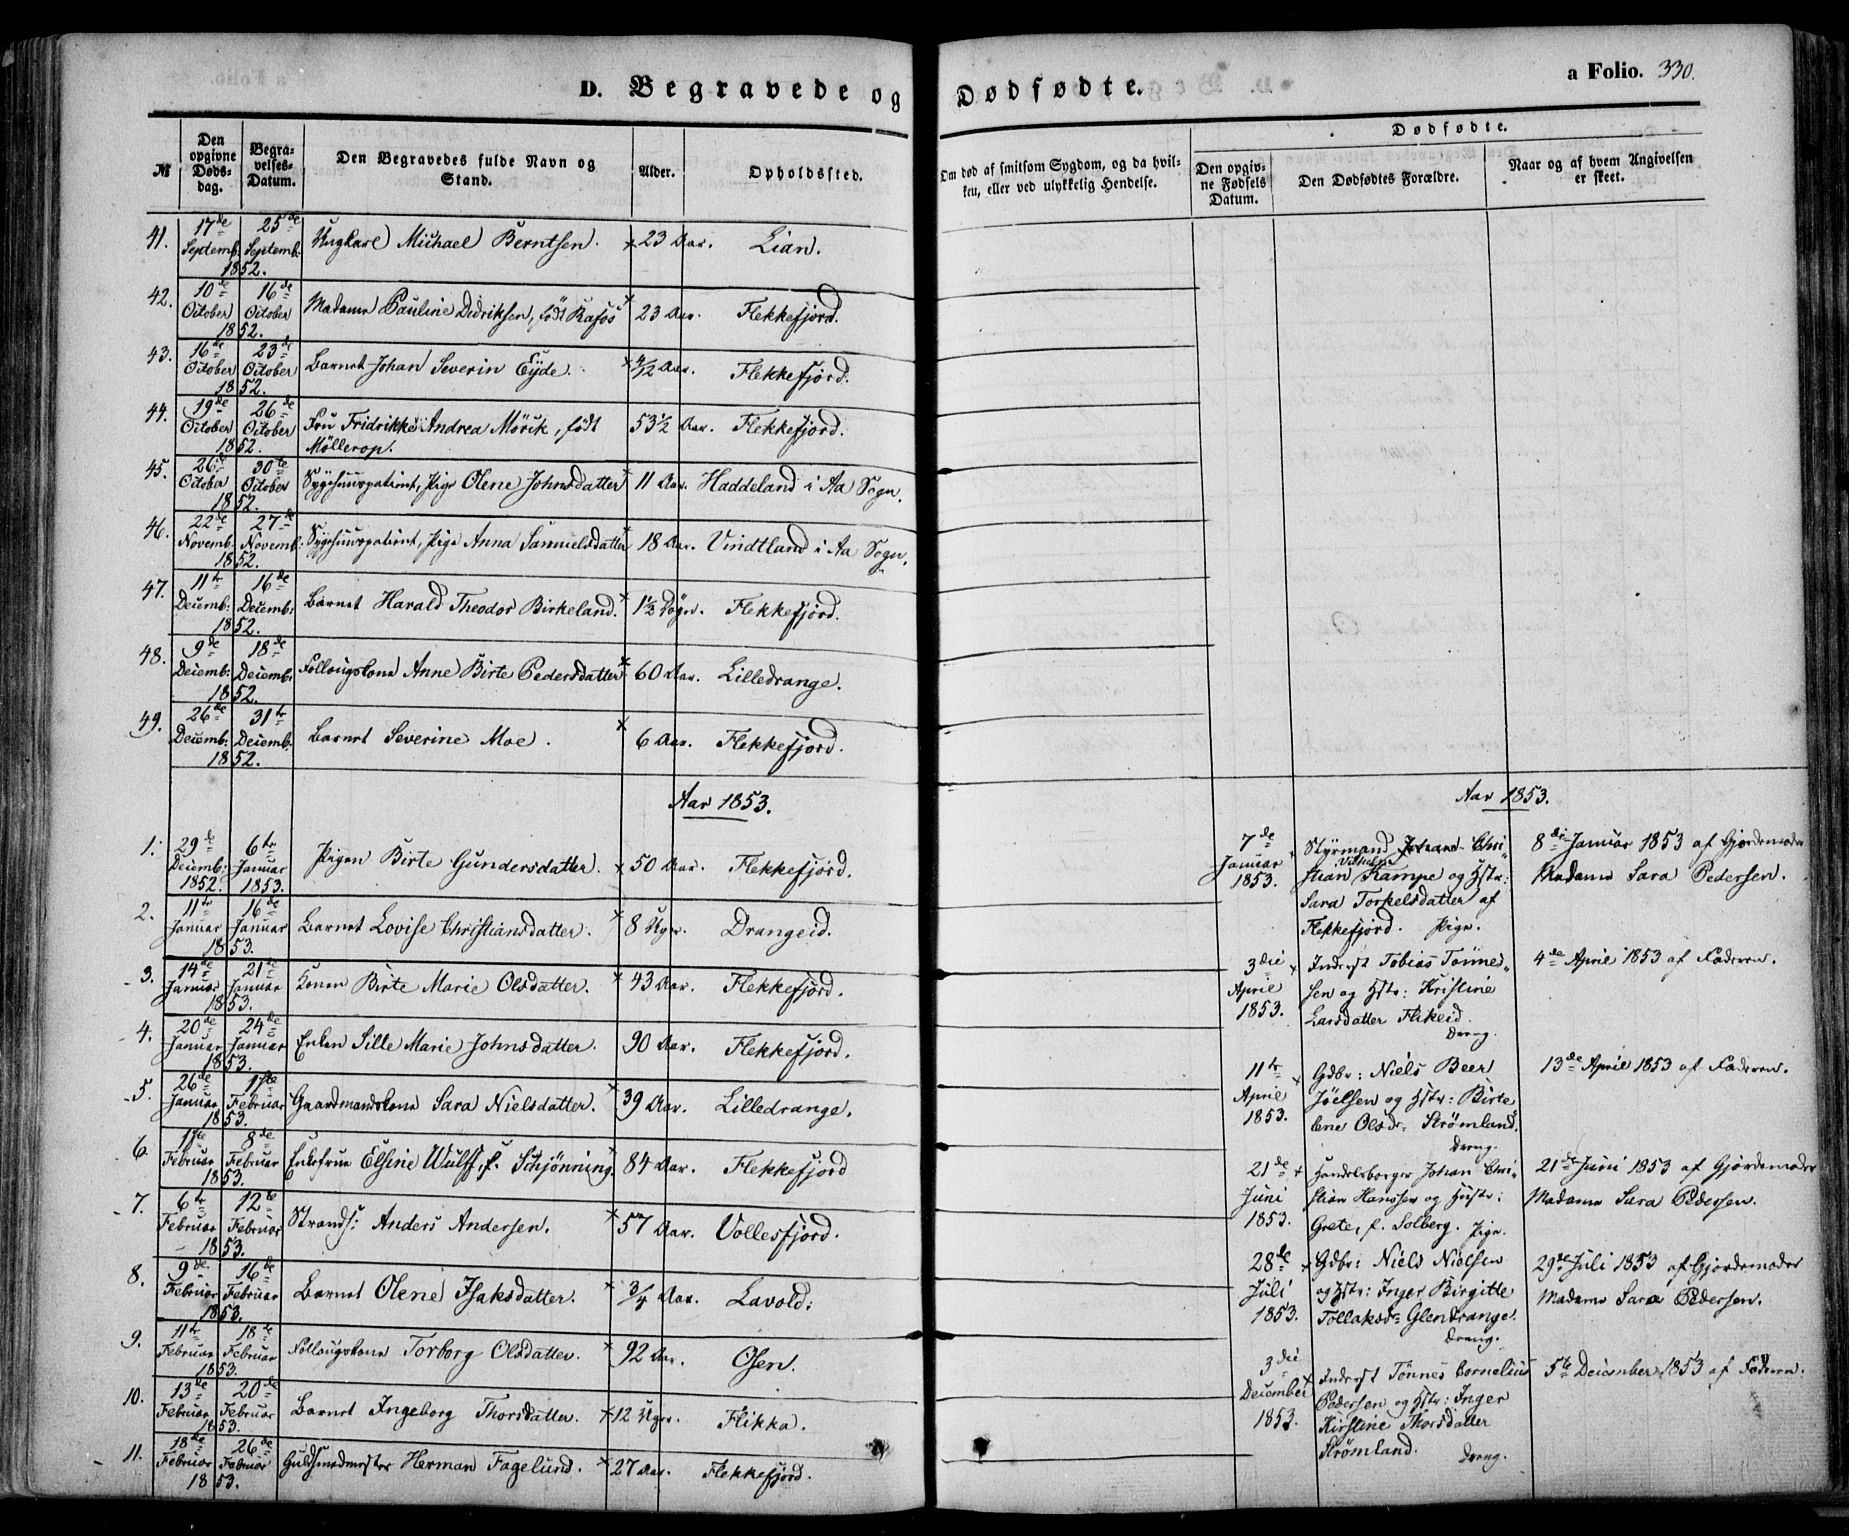 D. Begravede og Dødfødte.
a Folio. 330.
№
Den opgivne Døds-dag.
Begra-velses-Datum.
Den Begravedes fulde Navn og Stand.
Alder.
Opholdssted.
Om død af smitsom Sygdom, og da hvil-ken, eller ved ulykkelig Hendelse.
Dødfødte.
Den opgiv-ne Fødsels Datum.
Den Dødfødtes Forældre.
Naar og af hvem Angivelsen er skeet.
41. 17de Septemb: 1852. 25de Septemb: Ungkarl Michael Berntsen. × 23 Aar. Lian.
42. 10de October 1852. 16de October Madame Pauline Didriksen, født Rafos × 23 Aar. Flekkefjord.
43. 16de October 1852. 23de October Barnet Johan Severin Eÿde. × 4/12 Aar. Flekkefjord.
44. 19de October 1852. 26de October Fru Fridrikke Andrea Mörck, født Möllerop. 53 1/2 Aar. Flekkefjord.
45. 26de October 1852. 30te October Sygehuuspatient, Pige Olene Johnsdatter × 11 Aar. Haddeland i Aa Sogn.
46. 22de Novemb: 1852. 27de Novemb: Sygehuuspatient, Pige Anna Samuelsdatter × 18 Aar. Vindtland i Aa Sogn.
47. 11te Decemb: 1852. 16de Decemb: Barnet Harald Theodor Birkeland. × 1 1/2 Døgn. Flekkefjord.
48. 9de Decemb: 1852. 18de Decemb: Follougskone Anne Birte Pedersdatter × 60 Aar. Lilledrange.
49. 26de Decemb: 1852. 31te Decemb: Barnet Severine Moe. × 6 Aar. Flekkefjord.
Aar 1853.
1. 29de Decemb: 1852. 6te Januar 1853. Pigen Birte Gundersdatter. × 50 Aar. Flekkefjord.
2. 11te Januar 1853. 16de Januar Barnet Lovise Christiansdatter. × 8 Uger. Drangeid.
3. 14de Januar 1853. 21de Januar Konen Birte Marie Olsdatter. × 43 Aar. Flekkefjord.
4. 20de Januar 1853. 24de Januar Enken Sille Marie Johnsdatter. 90 Aar. Flekkefjord.
5. 26de Januar 1853. 1ste Februar Gaardmandskone Sara Nielsdatter. × 39 Aar. Lilledrange.
6. 1ste Februar 1853. 8de Februar Enkefrue Elsine Wulff, f. Schjönning. × 84 Aar. Flekkefjord
7. 6te Februar 1853. 12te Februar Strands: Anders Andersen. × 57 Aar. Vollesfjord.
8. 9de Februar 1853. 16de Februar Barnet Olene Isaksdatter. × 3/4 Aar. Lavold:
9. 11te Februar 1853. 18de Februar Follougskone Torborg Olsdatter. × 92 Aar. Osen.
10. 13de Februar 1853. 20de Februar Barnet Ingeborg Thorsdatter. × 12 Uger. Flikka.
11. 18de Februar 1853. 26de Februar Guldsmedmester Herman Fagelund. × 27 Aar. Flekkefjord.
Aar 1853.
7de Januar 1853. × Styrmand Johan Chri-
stian Vilhelm Kampe og Hstr:
Sara Torkelsdatter af
Flekkefjord. Pige.
8de Januar 1853 af Gjordemoder
Madame Sara Pedersen.
3die April 1853. × Inderst Tobias Tønnes-
sen og Hstr: Kristine
Larsdatter Flikeid.
Dreng.
4de April 1853 af Faderen.
11te April 1853. × Gdbr: Niels Beer
Jöelsen og Hstr: Birte
Lene Olsdr Strömland.
Dreng.
13de April 1853 af Faderen.
21de Juni 1853. × Handelsborger Johan Chri-
stian Hanssen og Hustr:
Grete, f. Solberg. Pige.
21de Juni 1853 af Gjordemoder
Madame Sara Pedersen.
28de Juli 1853. × Gdbr: Niels Nielsen
og Hstr: Inger Birgitte
Tollaksdr Glendrange.
Dreng.
29de Juli 1853 af Gjordemoder
Madame Sara Pedersen.
3die December 1853. × Inderst Tönnes Cornelius
Pedersen og Hstr: Inger
Kirstine Thorsdatter
Strömland. Dreng.
5te December 1853 af Faderen.